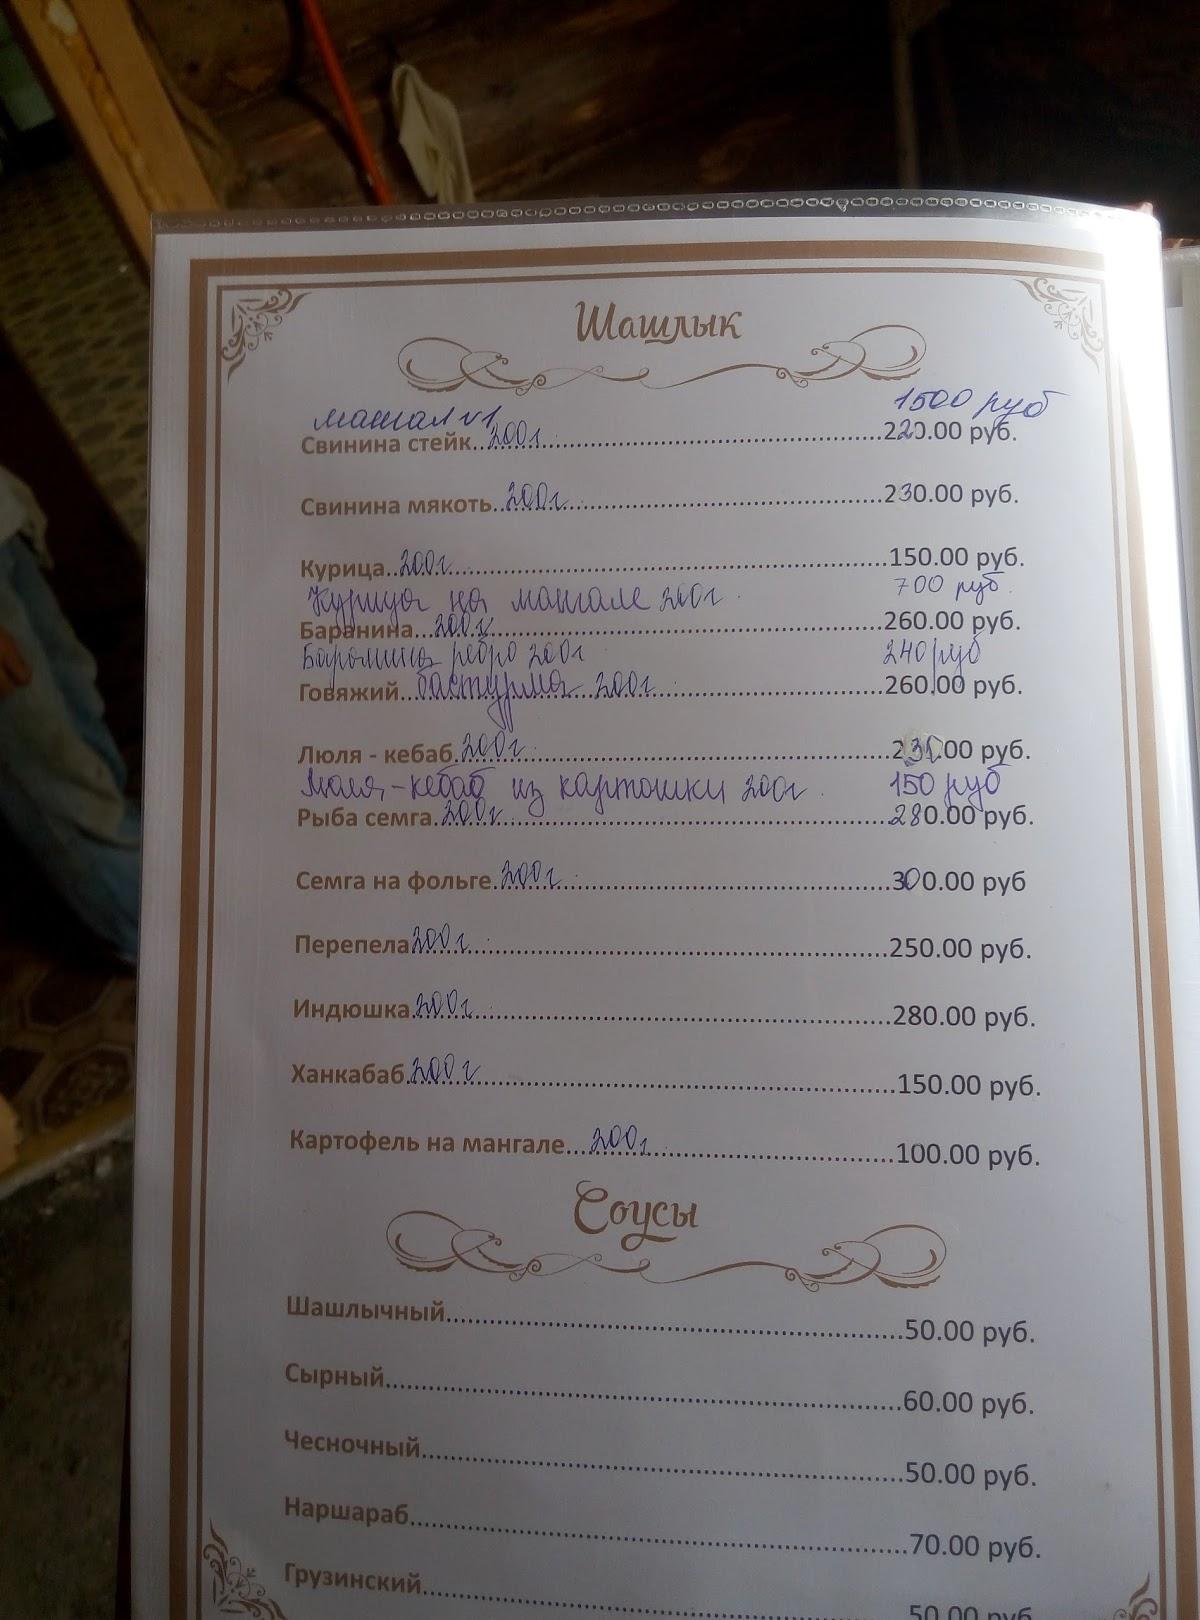 Шашлык
мангал v1 1500 руб
Свинина стейк 200г 220.00 руб.
Свинина мякоть 200г 230.00 руб.
Курица 200г 150.00 руб.
Курица на мангале 200г 700 руб.
Баранина 200г 260.00 руб.
Баранина ребро 200г 240 руб
Говяжий бастурма 200г 260.00 руб.
Люля - кебаб 200г 231.00 руб.
Люля-кебаб из картошки 200г 150 руб
Рыба семга 200г 280.00 руб.
Семга на фольге 200г 300.00 руб
Перепела 200г 250.00 руб.
Индюшка 200г 280.00 руб.
Ханкабаб 200г 150.00 руб.
Картофель на мангале 200г 100.00 руб.
Соусы
Шашлычный 50.00 руб.
Сырный 60.00 руб.
Чесночный 50.00 руб.
Наршараб 70.00 руб.
Грузинский 50.00 руб.